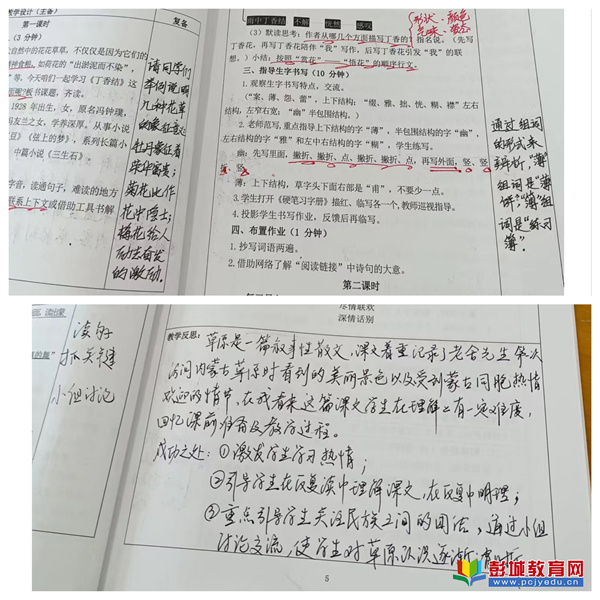 教学设计（主备）
复备
第一课时
（3分钟）
自然中的花花草草，不仅仅是因为它们的
如荷花的“出淤泥而不染”，
等，今天咱们一起学习《丁香结》这
板书课题，齐读。
1928年出生，女，原名冯钟璞，
友兰之女，学养深厚。从事小说
豆》《弦上的梦》，系列长篇小
中篇小说《三生石》
字音，读通句子，难读的地方
联系上下文或借助工具书解
请同学们
举例说明
几种花草
的象征意义
牡丹象征着
荣华富贵；
菊花比作
花中隐士；
梅花给人
的激励。
雨中丁香结 不解 恍然 感叹
形状、颜色
气味、姿态
（3）默读思考：作者从哪几个方面描写丁香的？指名说。（先写
丁香花，再写丁香花陪伴“我”写作，后写丁香花引发“我”的联
想。）小结：按照“赏花”——“悟花”的顺序行文。
三、指导生字书写（10分钟）
1.观察生字书写特点，交流。
（“案、薄、怨、蕾”，上下结构；“缀、雅、拙、恍、糊、襟”左右
结构，左窄右宽；“幽”半包围结构。）
2.老师范写，重点指导上下结构的字“薄”，半包围结构的字“幽”，
左右结构的字“雅”和左中右结构的字“糊”，学生练写。
幽：先写里面，撇折、撇折、点、撇折、撇折、点，再写外面，竖、竖
折、竖。
薄：上下结构，草字头下面右部是“甫”，不要少一点。
3.学生打开《硬笔习字册》描红、临写各一个，教师巡视指导。
4.投影学生书写作业，反馈后再临写。
四、布置作业（1分钟）
1.抄写词语两遍。
2.借助网络了解“阅读链接”中诗句的大意。
第二课时
通过组词
的形式来
辨析，“薄”
组词是“薄
饼”，“簿”组
词是“练习
簿”。
读句
抓关键
小组讨论
尽情联欢
深情话别
教学反思：草原是一篇叙事性散文，课文着重记录了老舍先生第一次
访问内蒙古草原时看到的美丽景色以及受到蒙古同胞热情
欢迎的情景，在我看来这篇课文学生在理解上有一定难度，
回忆课前准备及教学过程。
成功之处：①激发学生学习热情；
②引导学生在反复读中理解课文，在反复中明理；
③重点引导学生关注民族之间的团结，通过小组
讨论交流，使学生对草原认识逐渐清晰
5
彭城教育网
www.pcjyedu.cn